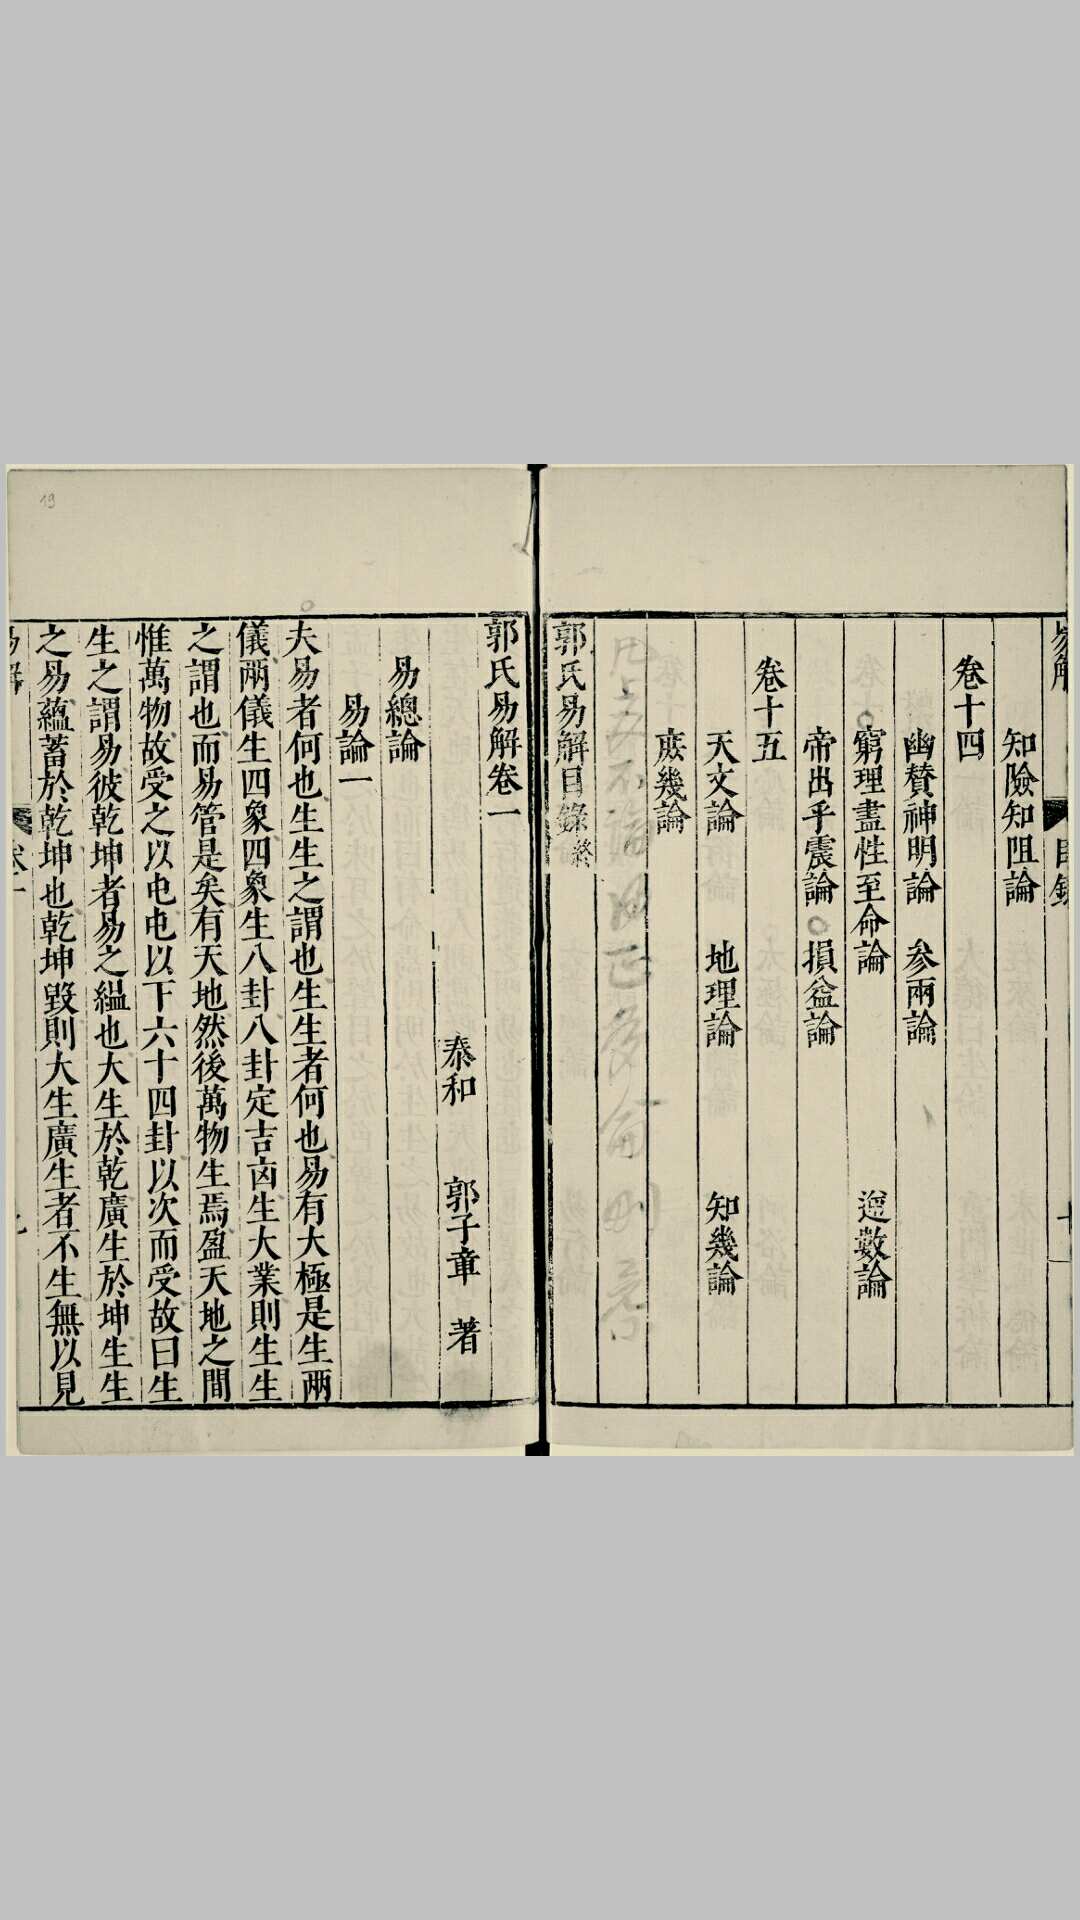 知險知阻論
卷十四
幽贊神明論 參兩論
窮理盡性至命論 逆數論
帝出乎震論 損益論
卷十五
天文論 地理論 知幾論
庶幾論
郭氏易解目錄終
郭氏易解卷一
泰和 郭子章 著
易總論
易論一
夫易者何也生生之謂也生生者何也易有大極是生兩
儀兩儀生四象四象生八卦八卦定吉凶生大業則生生
之謂也而易管是矣有天地然後萬物生焉盈天地之間
惟萬物故受之以屯屯以下六十四卦以次而受故曰生
生之謂易彼乾坤者易之縕也大生於乾廣生於坤生生
之易蘊蓄於乾坤也乾坤毀則大生廣生者不生無以見
19